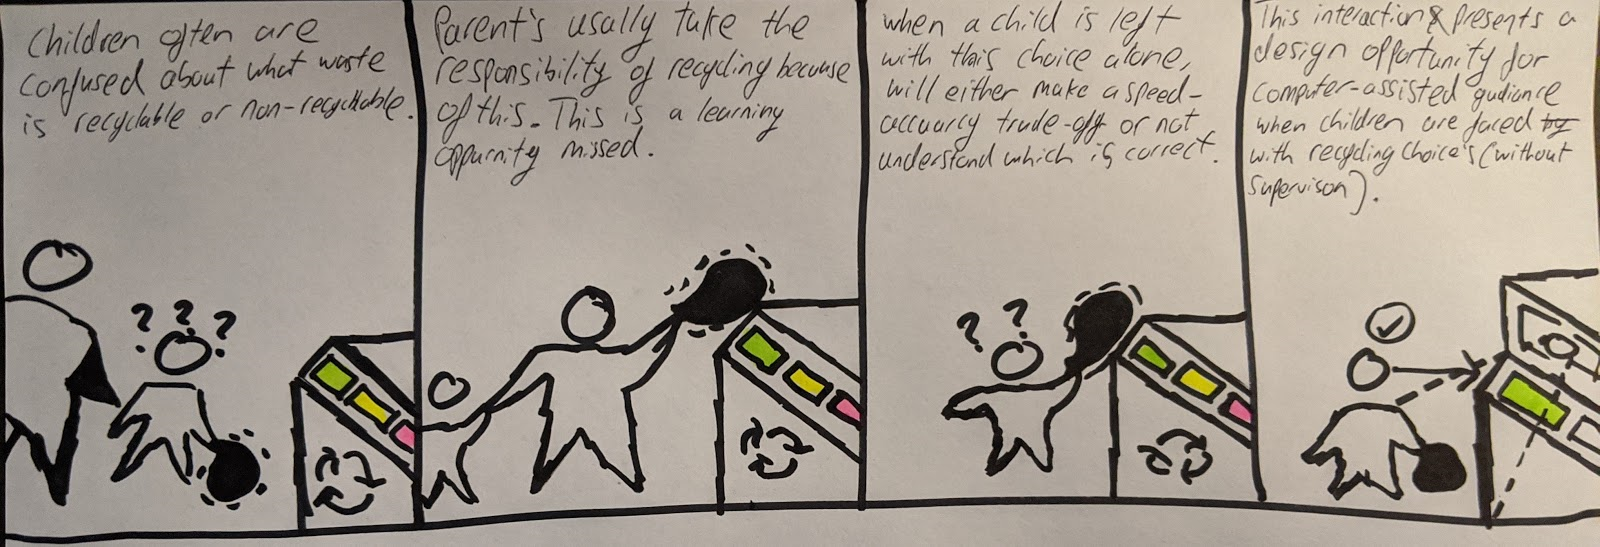 Children often are
confused about what waste
is recyclable or non-recycllable.
Parent's usally take the
responsibility of recycling because
of this. This is a learning
oppurnity missed.
when a child is left
with this choice alone,
will either make a speed-
accuarcy trade-off or not
understand which is correct.
This interaction presents a
design opportunity for
computer-assisted gudiance
when children are faced by
with recycling choice's (without
supervison).
? ? ?
? ?